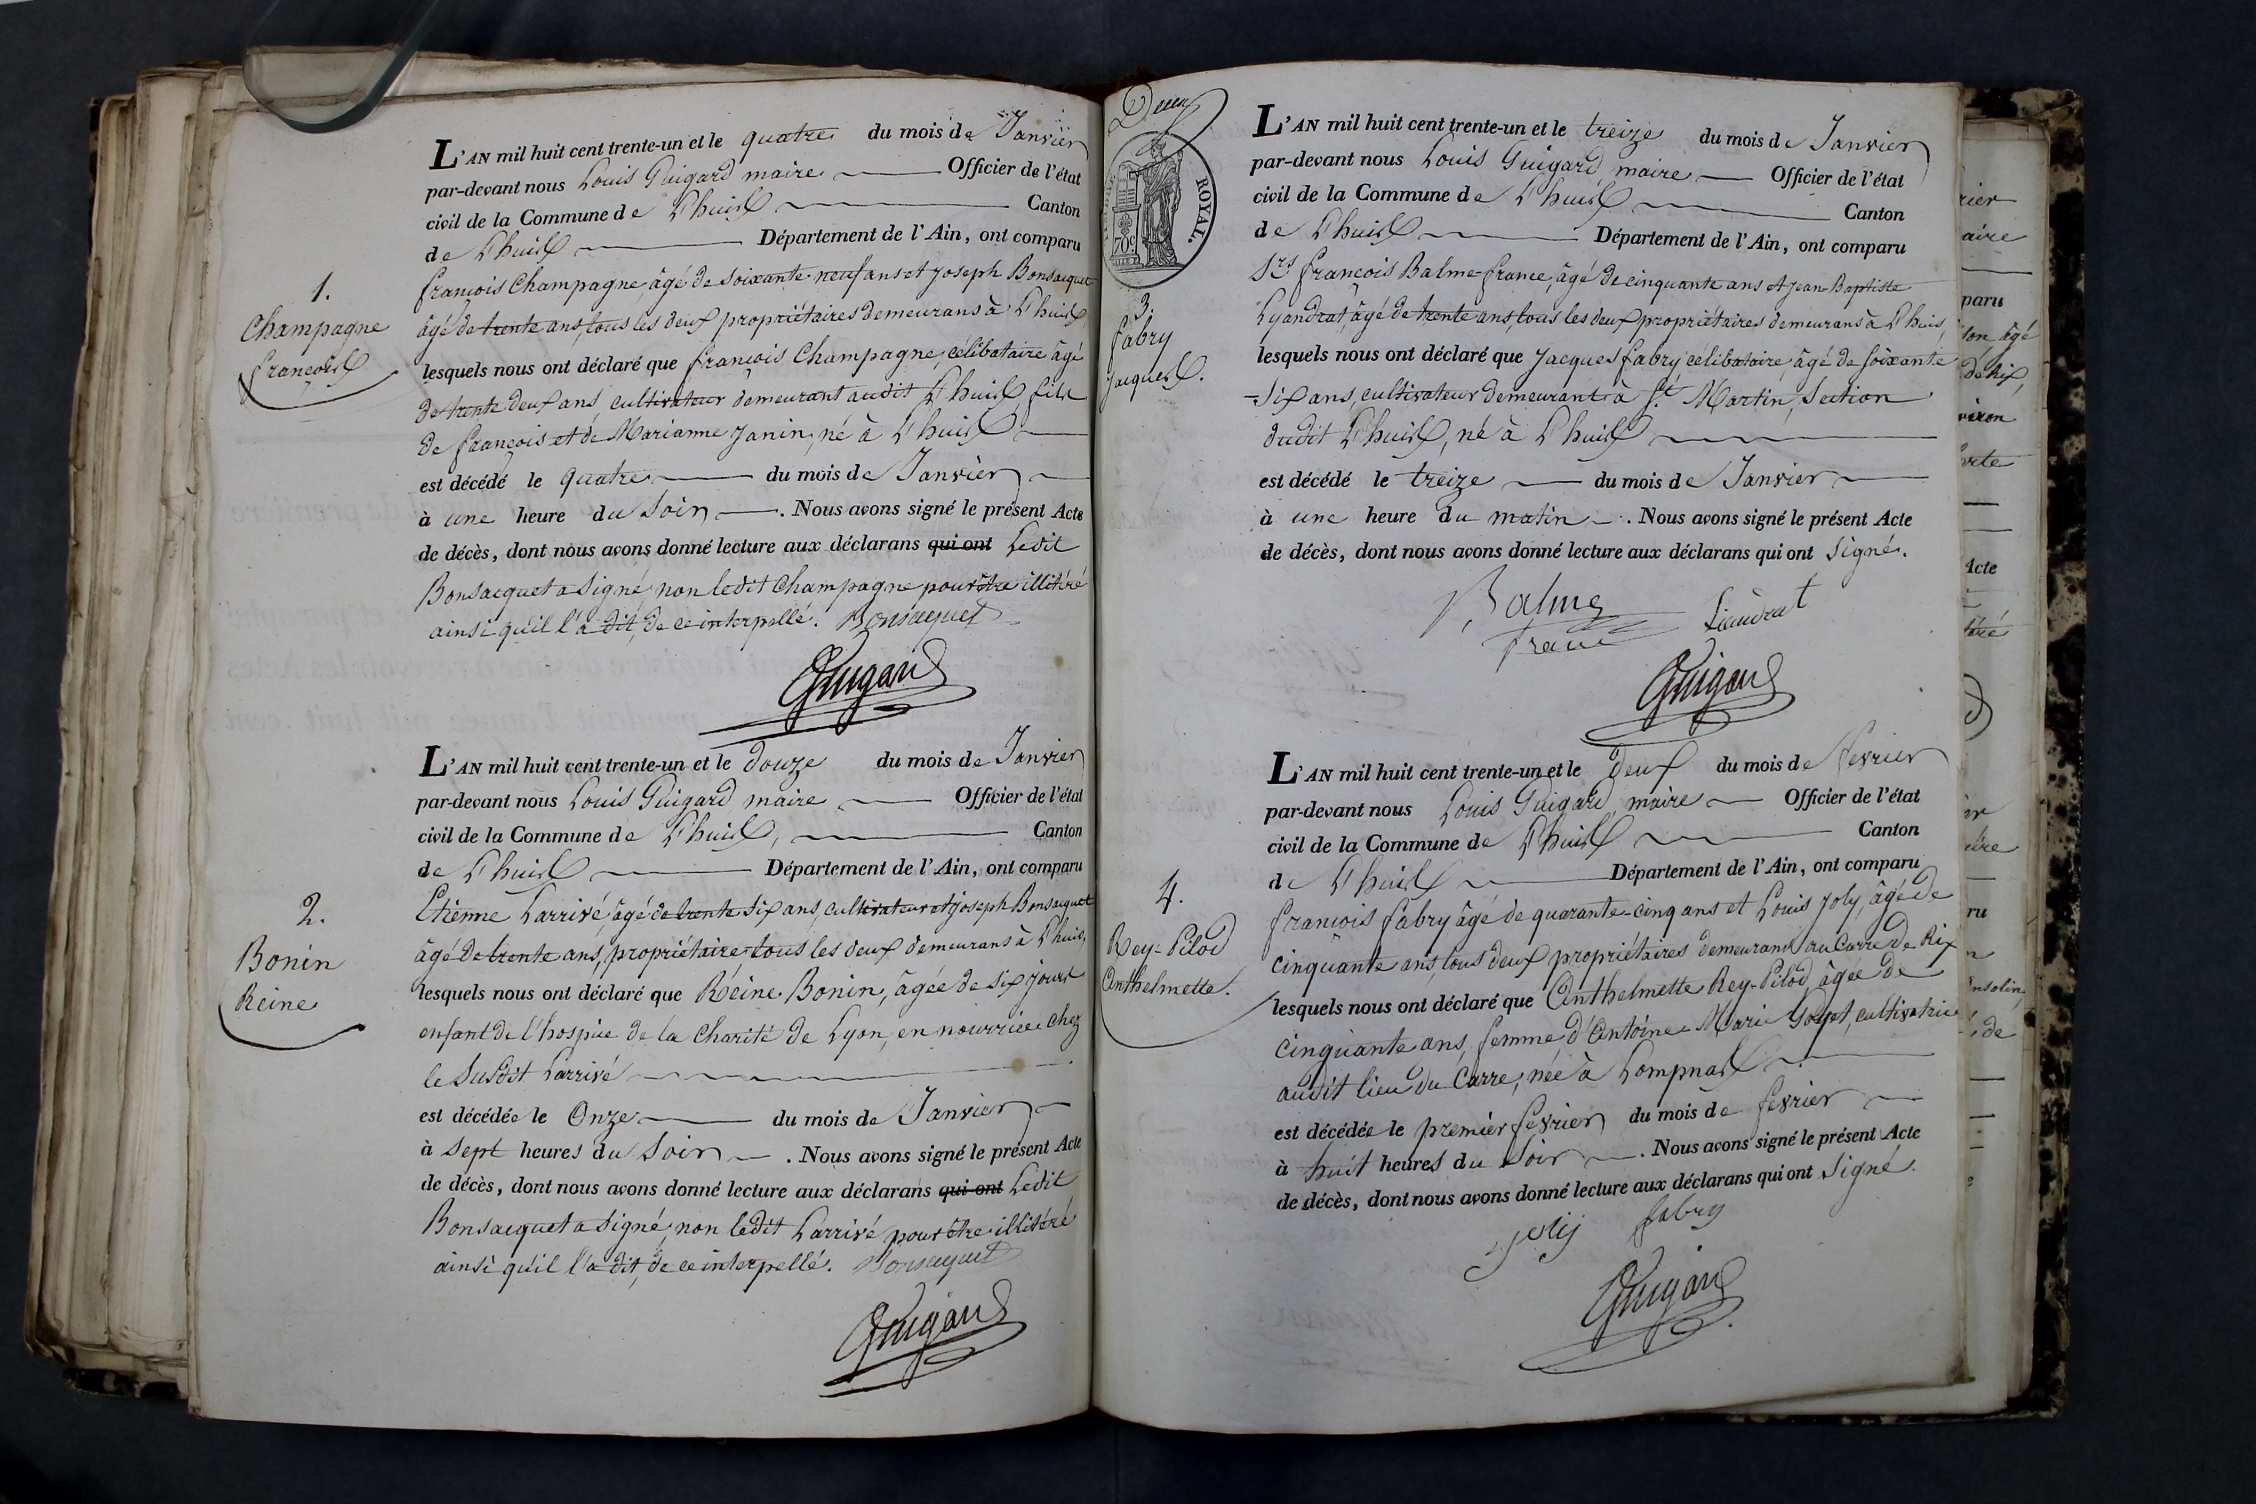 L'AN mil huit cent trente-un et le quatre du mois de Janvier
par-devant nous Louis Guigard maire Officier de l'état
civil de la Commune de L'huis Canton
de L'huis Département de l'Ain, ont comparu
françois Champagne, âgé de soixante-neuf ans et Joseph Bonsacquet
âgé de trente ans, tous les deux propriétaires demeurans à L'huis
lesquels nous ont déclaré que françois Champagne, célibataire âgé
de trente deux ans, cultivateur demeurant audit L'huis fils
de françois et de Marianne Janin, né à L'huis
est décédé le quatre du mois de Janvier
à une heure du Soir. Nous avons signé le présent Acte
de décès, dont nous avons donné lecture aux déclarans qui ont Ledit
Bonsacquet a signé, non ledit Champagne pour être illitéré
ainsi qu'il l'a dit, de ce interpellé. Bonsacquet
Guigard
1.
Champagne
françois
L'AN mil huit cent trente-un et le douze du mois de Janvier
par-devant nous Louis Guigard maire Officier de l'état
civil de la Commune de L'huis, Canton
de L'huis Département de l'Ain, ont comparu
Etienne Larrivé, âgé de trente six ans, cultivateur et joseph Bonsacquet
âgé de trente ans, propriétaire tous les deux demeurans à L'huis,
lesquels nous ont déclaré que Réine Bonin, âgée de six jours
enfant de l'hospice de la Charité de Lyon, en nourrice chez
le Susdit Larrivé
est décédée le Onze du mois de Janvier
à sept heures du Soir. Nous avons signé le présent Acte
de décès, dont nous avons donné lecture aux déclarans qui ont Ledit
Bonsacquet a signé, non ledit Larrivé pour être illitéré
ainsi qu'il l'a dit, de ce interpellé. Bonsacquet
Guigard
2.
Bonin
Reine
ROYAL.
70c
L'AN mil huit cent trente-un et le treize du mois de Janvier
par-devant nous Louis Guigard maire Officier de l'état
civil de la Commune de L'huis Canton
de L'huis Département de l'Ain, ont comparu
Srs françois Balme-france, âgé de cinquante ans et Jean-Baptiste
Lyandrat, âgé de trente ans, tous les deux propriétaires demeurans à L'huis,
lesquels nous ont déclaré que Jacques fabry, célibataire, âgé de soixante
-six ans, cultivateur demeurant à St Martin, Section
dudit L'huis, né à L'huis
est décédé le treize du mois de Janvier
à une heure du matin. Nous avons signé le présent Acte
de décès, dont nous avons donné lecture aux déclarans qui ont signé.
Balme
france Liandrat
Guigard
3.
fabry
jacques.
L'AN mil huit cent trente-un et le deux du mois de fevrier
par-devant nous Louis Guigard maire Officier de l'état
civil de la Commune de L'huis Canton
de L'huis Département de l'Ain, ont comparu
françois fabry âgé de quarante-cinq ans et Louis Joly, âgé de
cinquante ans, tous deux propriétaires demeurans au Carre de Rix
lesquels nous ont déclaré que Anthelmette Rey-Pilod, âgée de
cinquante ans, femme d'Antoine-Marie Goyet, cultivatrice
audit lieu du Carre, née à Lompnas
est décédée le premier fevrier du mois de fevrier
à huit heures du Soir. Nous avons signé le présent Acte
de décès, dont nous avons donné lecture aux déclarans qui ont signé.
Joly fabry
Guigard
4.
Rey-Pilod
Anthelmette.